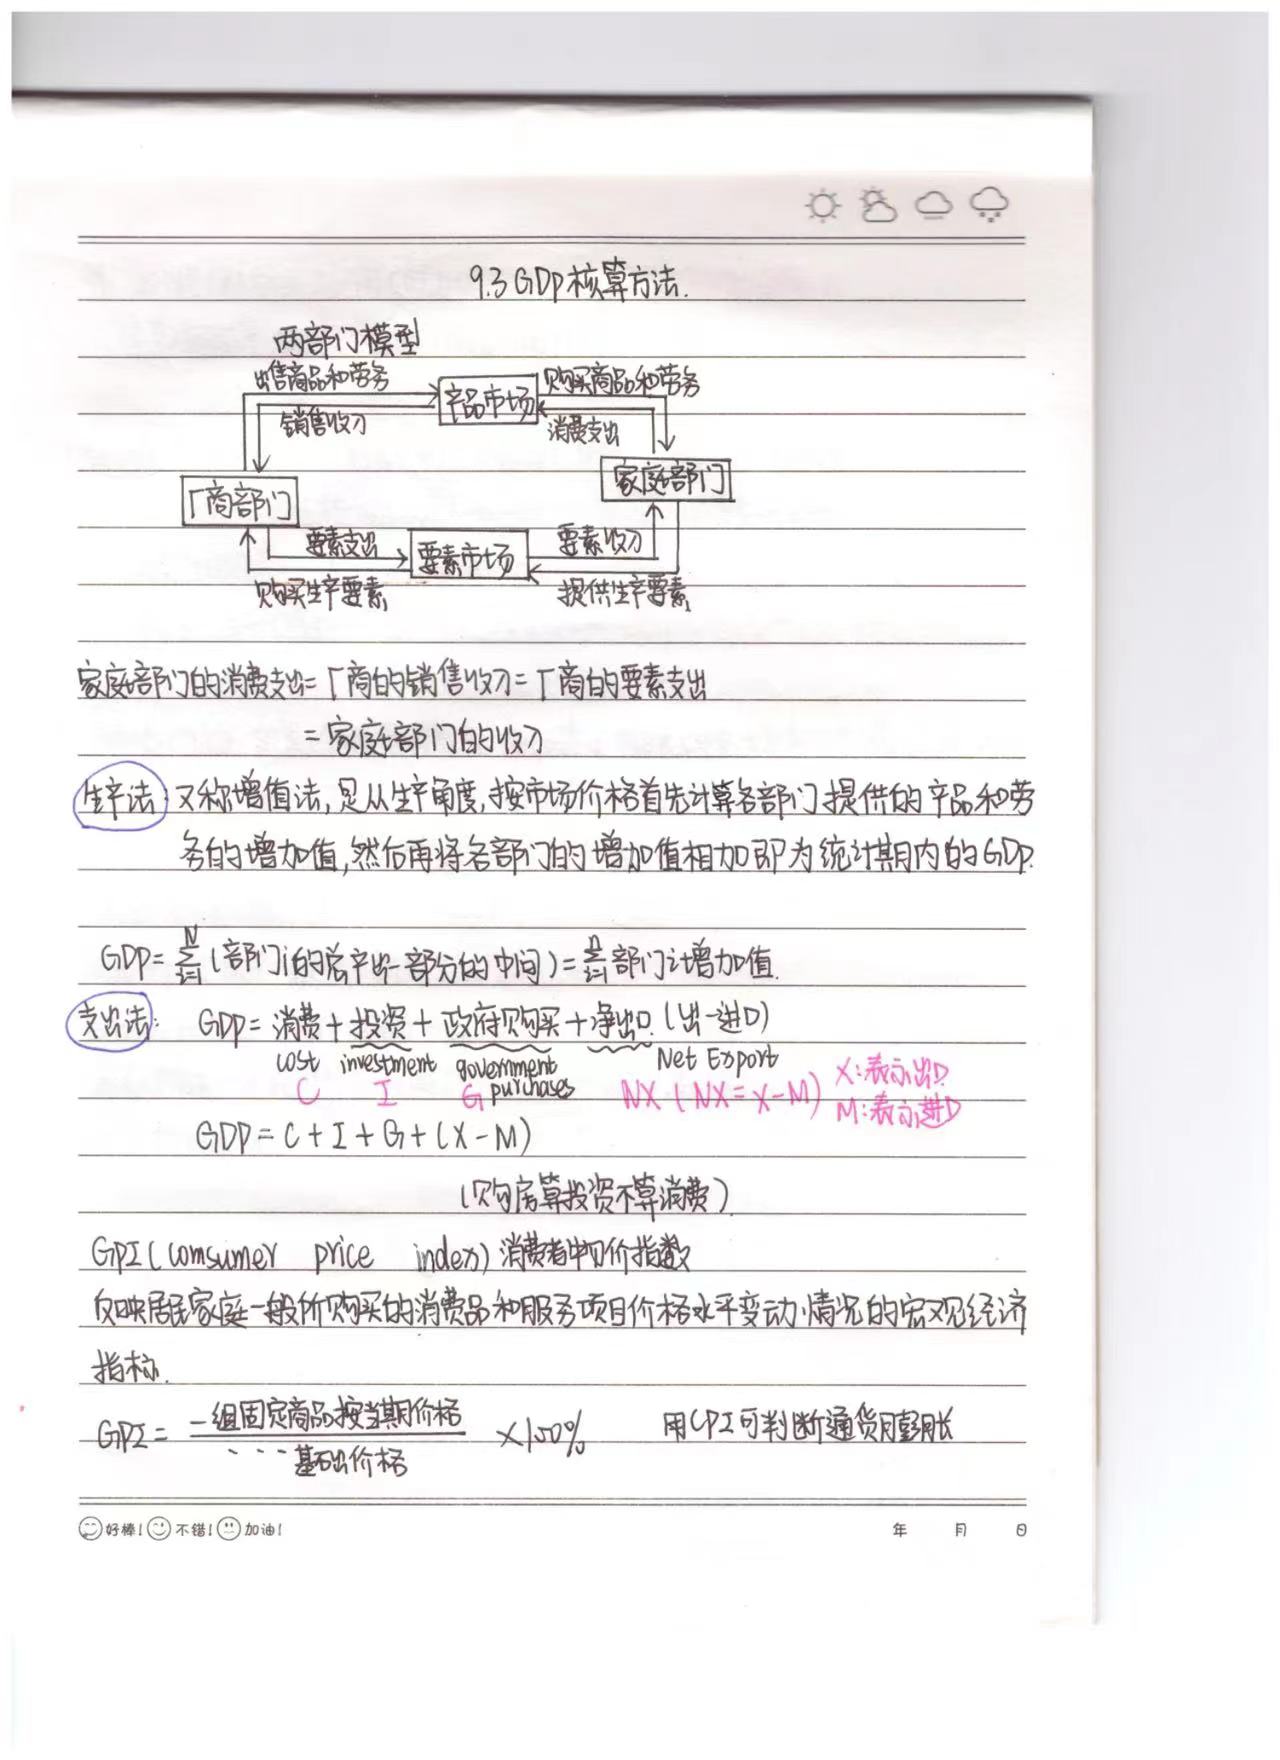 9.3 GDP核算方法.
两部门模型
出售商品和劳务
产品市场
购买商品和劳务
销售收入
消费支出
家庭部门
厂商部门
要素支出
要素市场
要素收入
购买生产要素
提供生产要素
家庭部门的消费支出=厂商的销售收入=厂商的要素支出
=家庭部门的收入
生产法:又称增值法,是从生产角度,按市场价格首先计算各部门提供的产品和劳
务的增加值,然后再将各部门的增加值相加即为统计期内的GDP.
GDP=N∑i=1(部门i的总产出-部分的中间)=n∑i=1部门i增加值.
支出法: GDP=消费+投资+政府购买+净出口.(出-进口)
cost investment government purchases Net Export
C I G NX (NX=X-M) X:表示出口
M:表示进口
GDP=C+I+G+(X-M)
(购房算投资不算消费)
GPI(comsumer price index)消费者中介价指数
反映居民家庭一般所购买的消费品和服务项目价格水平变动情况的宏观经济
指标.
GPI= 一组固定商品按当期价格 ×100% 用CPI可判断通货膨胀
· · · · 基础价格
好棒! 不错! 加油! 年 月 日